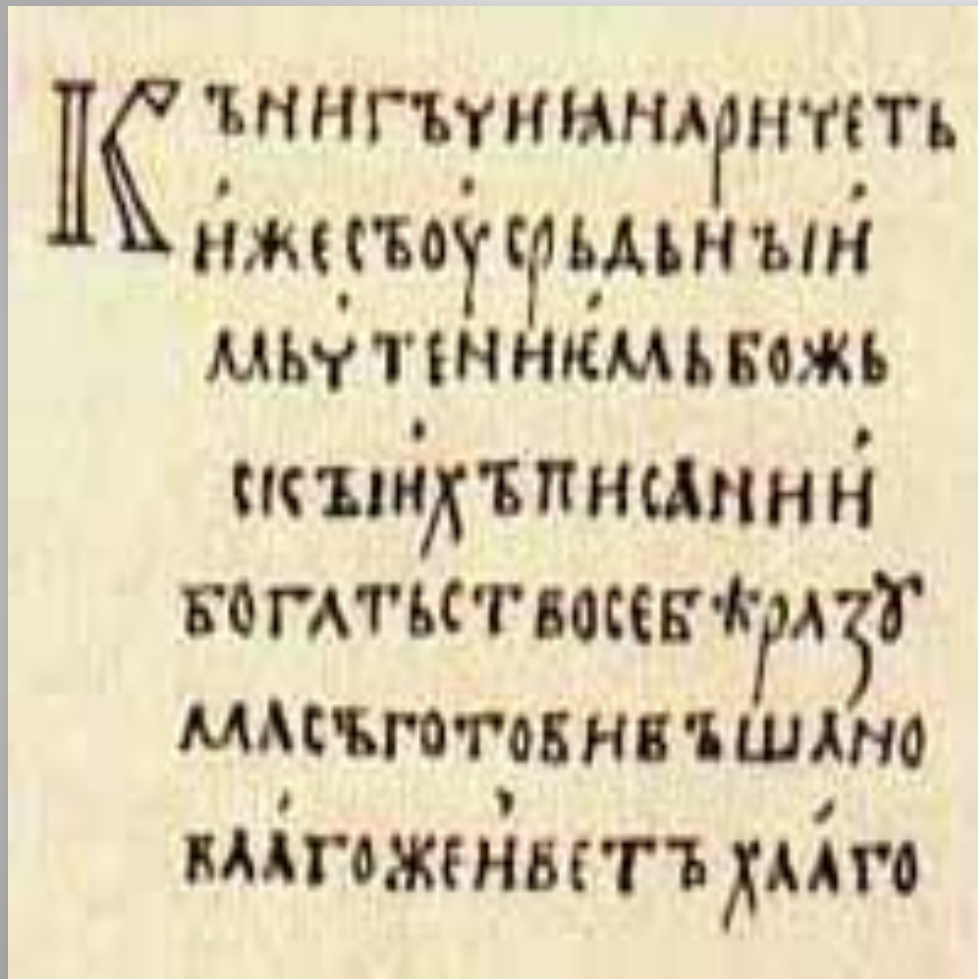 КЪНИГЪЧИꙖНАРИЧЕТЬ
ИЖЕСЪОУСРЬДЬНЪІИ
МЬЧТЕНИѤМЬБОЖЬ
СІСЪІИХЪПИСАНИИ
БОГАТЬСТВОСЕБѢРАЗꙋ
МАСЪГОТОВИВЪШАНО
ВААГОЖЕИВЕТЪХААГО